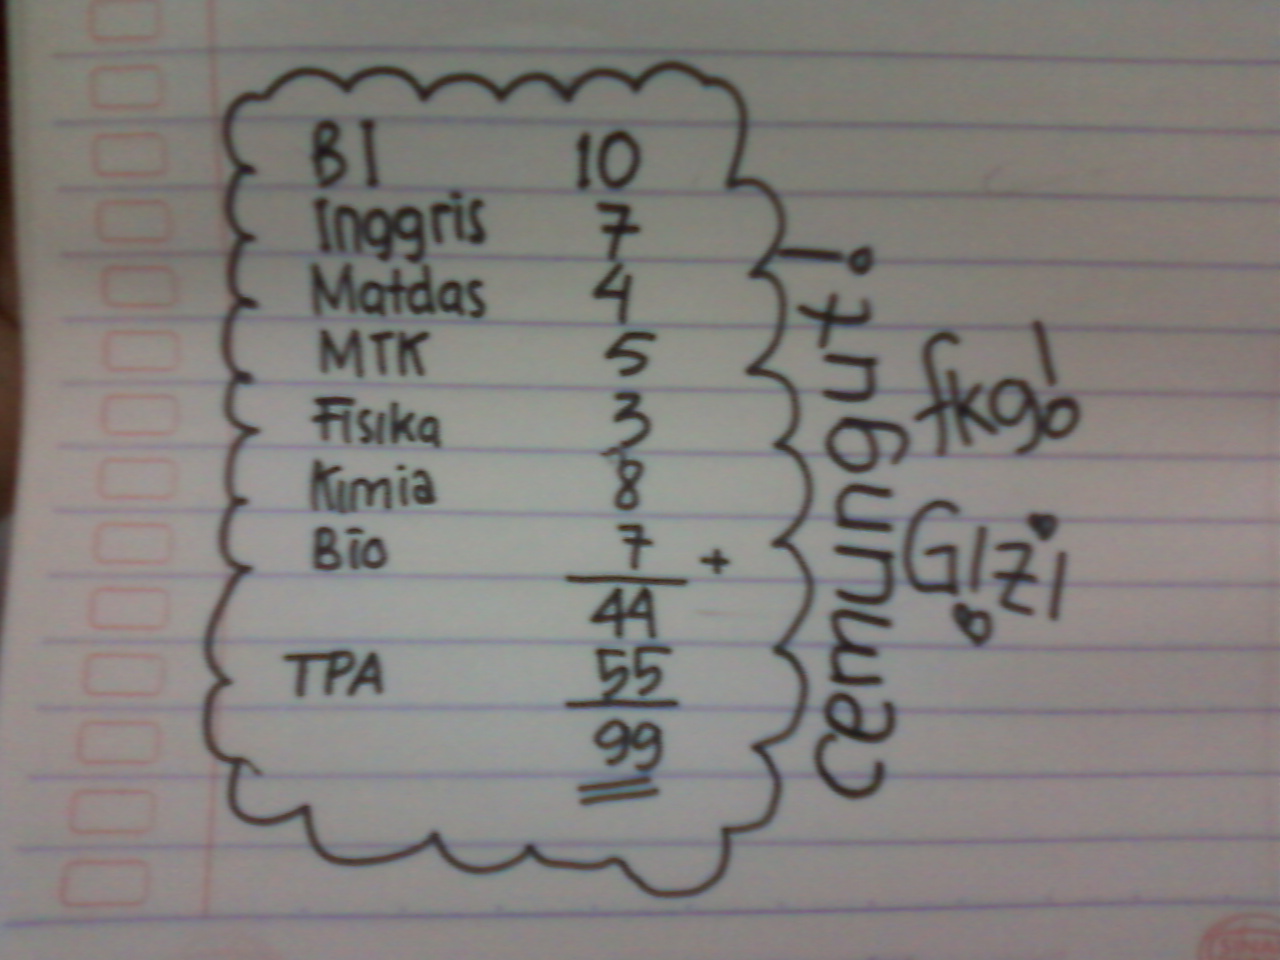 BI 10
Inggris 7
Matdas 4
MTK 5
Fisika 3
Kimia 8
Bio 7 +
44
TPA 55
99
cemungut!
fkg!
Gizi